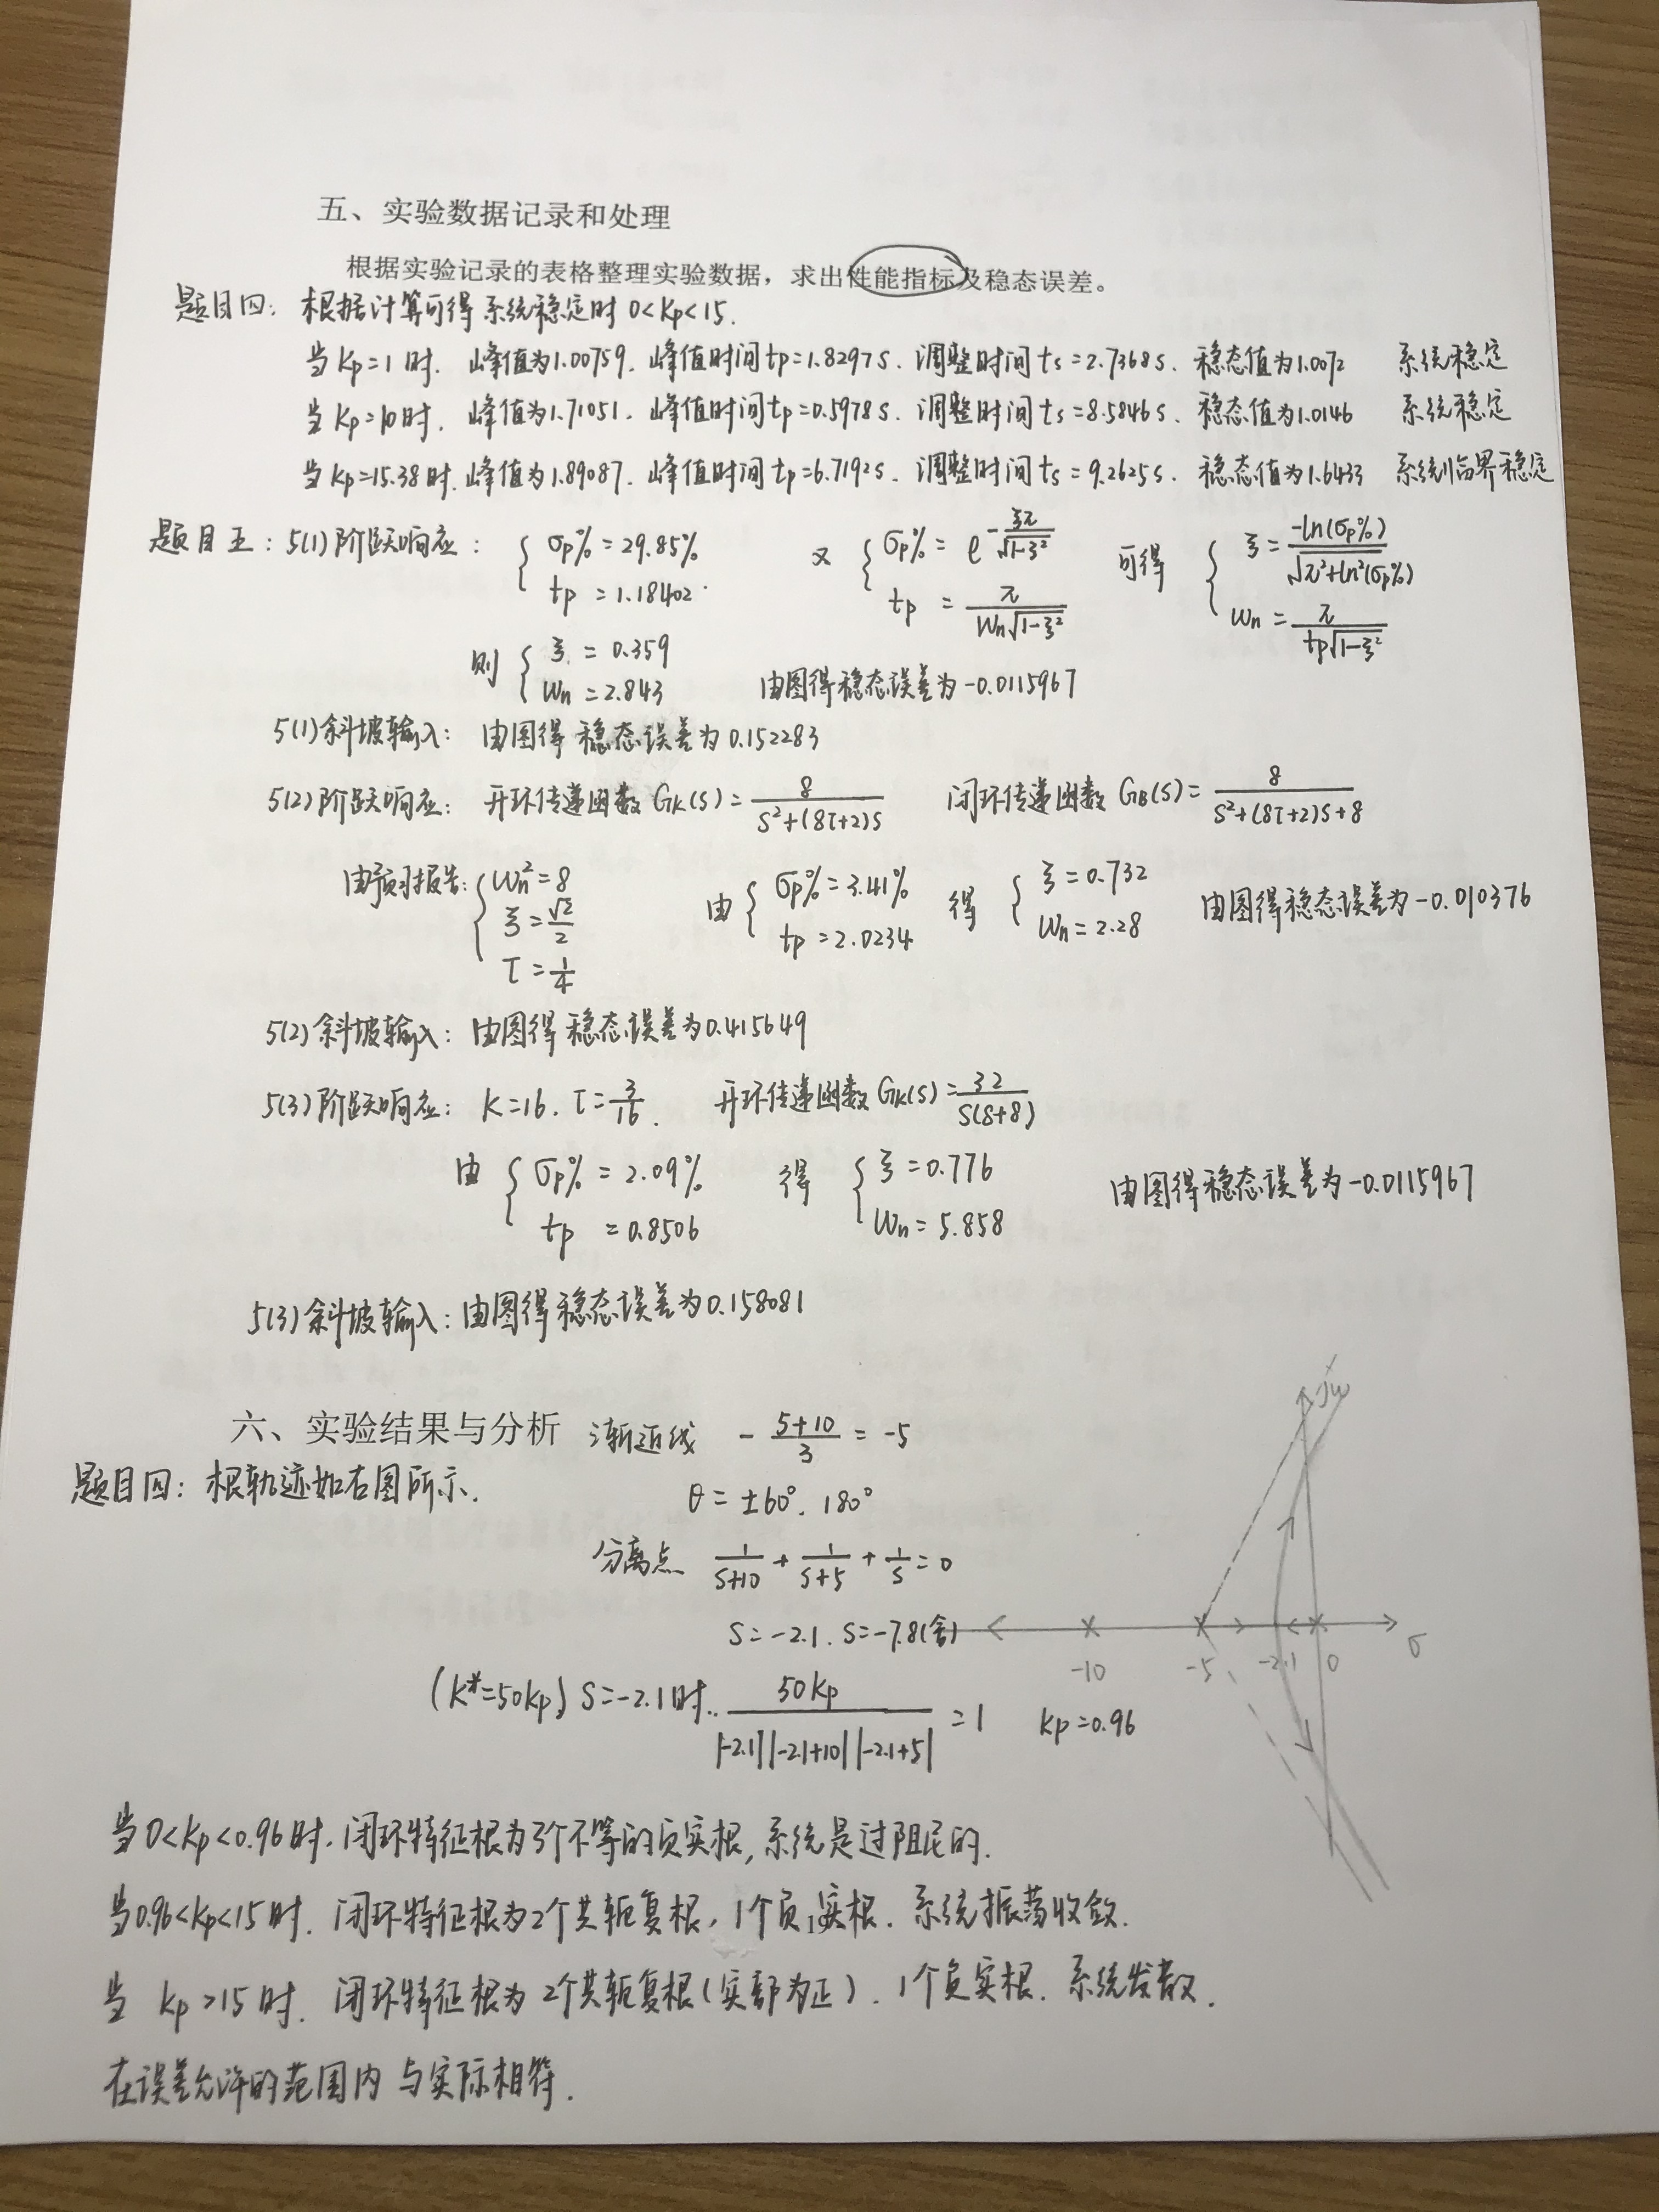 五、实验数据记录和处理
根据实验记录的表格整理实验数据，求出性能指标及稳态误差。
题目四: 根据计算可得系统稳定时 0<Kp<15.
当Kp=1时. 峰值为1.00759. 峰值时间tp=1.8297s. 调整时间ts=2.7368s. 稳态值为1.0072 系统稳定
当Kp=10时. 峰值为1.71051. 峰值时间tp=0.5978s. 调整时间ts=8.5846s. 稳态值为1.0146 系统稳定
当Kp=15.38时. 峰值为1.89087. 峰值时间tp=6.7192s. 调整时间ts=9.2625s. 稳态值为1.6433 系统临界稳定
题目五: 5(1)阶跃响应: { σp%=29.85% tp=1.18402. 又 { σp%=e^{-ξπ/√(1-ξ²)} tp=π/(Wn√(1-ξ²)) 可得 { ξ=-ln(σp%)/√(π²+ln²(σp%)) Wn=π/(tp√(1-ξ²))
则 { ξ=0.359 Wn=2.843 由图得稳态误差为-0.0115967
5(1)斜坡输入: 由图得稳态误差为0.152283
5(2)阶跃响应: 开环传递函数 GK(S)=8/(S²+(8τ+2)S) 闭环传递函数 GB(S)=8/(S²+(8τ+2)S+8)
由预习报告: { Wn²=8 ξ=√2/2 τ=1/4 由 { σp%=3.41% tp=2.0234 得 { ξ=0.732 Wn=2.28 由图得稳态误差为-0.010376
5(2)斜坡输入: 由图得稳态误差为0.415649
5(3)阶跃响应: K=16. τ=3/16. 开环传递函数GK(S)=32/(S(S+8))
由 { σp%=2.09% tp=0.8506 得 { ξ=0.776 Wn=5.858 由图得稳态误差为-0.0115967
5(3)斜坡输入: 由图得稳态误差为0.158081
六、实验结果与分析 渐近线 -(5+10)/3=-5
题目四: 根轨迹如右图所示.
θ=±60°. 180°
分离点 1/(S+10)+1/(S+5)+1/S=0
S=-2.1. S=-7.8(舍)
(K*=50Kp) S=-2.1时. 50Kp/(|-2.1||-2.1+10||-2.1+5|)=1 Kp=0.96
jw
-10 -5 -2.1 0 σ
当0<Kp<0.96时. 闭环特征根为3个不等的负实根, 系统是过阻尼的.
当0.96<Kp<15时. 闭环特征根为2个共轭复根, 1个负实根. 系统振荡收敛.
当 Kp>15时. 闭环特征根为2个共轭复根(实部为正). 1个负实根. 系统发散.
在误差允许的范围内 与实际相符.